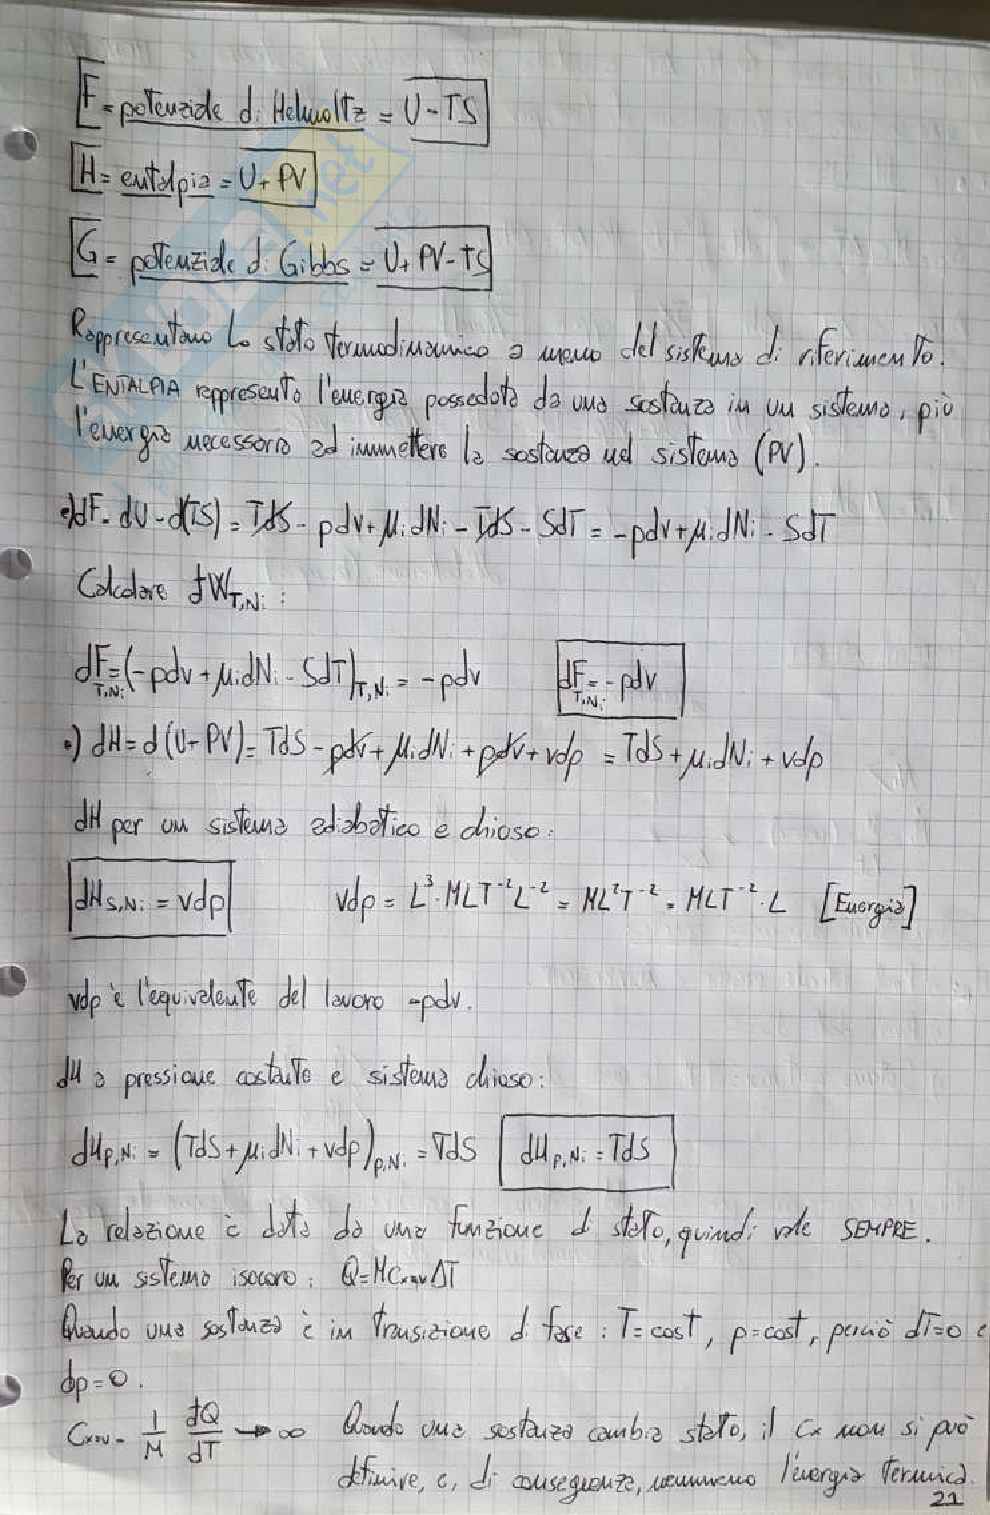 F = potenziale di Helmoltz = U - TS
H = entalpia = U + PV
G = potenziale di Gibbs = U + PV - TS
Rappresentano lo stato termodinamico a meno del sistema di riferimento.
L'ENTALPIA rappresenta l'energia posseduta da una sostanza in un sistema, più
l'energia necessaria ad immettere la sostanza nel sistema (PV).
•) dF = dU - d(TS) = TdS - pdv + μidNi - TdS - SdT = -pdv + μidNi - SdT
Calcolare đW T,Ni :
dF T,Ni = (-pdv + μidNi - SdT) T,Ni = -pdv dF T,Ni = -pdv
•) dH = d(U+PV) = TdS - pdv + μidNi + pdv + vdp = TdS + μidNi + vdp
dH per un sistema adiabatico e chiuso:
dH S,Ni = vdp vdp = L³·MLT⁻²L⁻² = ML²T⁻² = MLT⁻²·L [Energia]
vdp è l'equivalente del lavoro -pdv.
dH a pressione costante e sistema chiuso:
dH p,Ni = (TdS + μidNi + vdp) p,Ni = TdS dH p,Ni = TdS
La relazione è data da una funzione di stato, quindi vale SEMPRE.
Per un sistema isocoro: Q = MCxΔT
Quando una sostanza è in transizione di fase: T=cost, p=cost, perciò dT=0 e
dp=0.
Cx = 1/M đQ/dT → ∞ Quando una sostanza cambia stato, il Cx non si può
definire, e, di conseguenza, nemmeno l'energia termica.
21